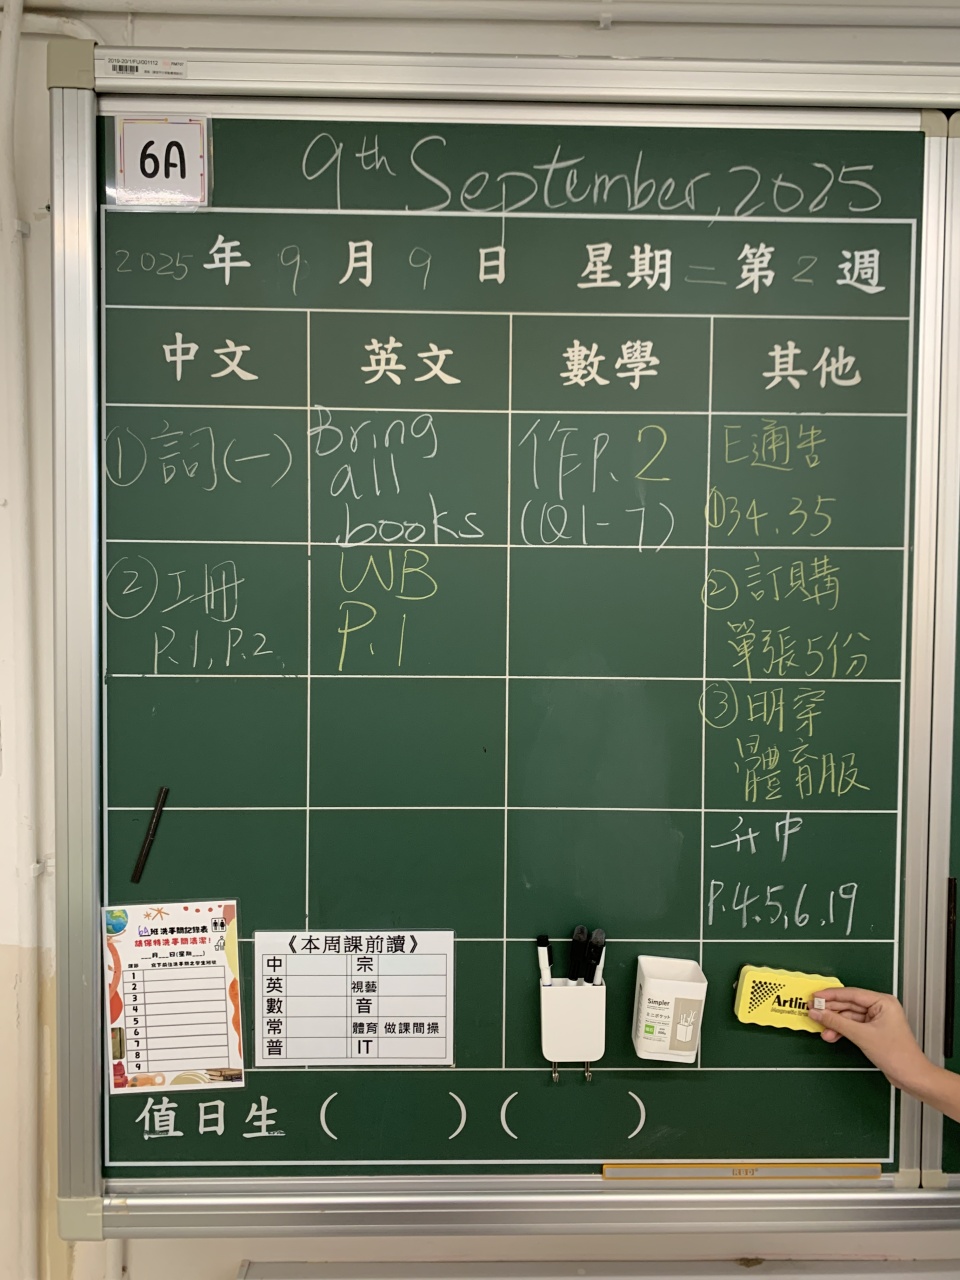 2019-20/1/FU/001112
6A
9th September, 2025
2025年9月9日 星期二 第2週
中文 英文 數學 其他
①詞(一)
②工冊
P.1, P.2
Bring
all
books
WB
P.1
作P.2
(Q1-7)
E通告
①34.35
②訂購
單張5份
③明穿
體育服
升中
P.4.5.6.19
6A班洗手間記錄表
請保持洗手間清潔!
___月___日(星期___)
1
2
3
4
5
6
7
8
9
《本周課前讀》
中 宗
英 視藝
數 音
常 體育 做課間操
普 IT
Simpler
ミニポケット
Artlin
值日生 ( ) ( )